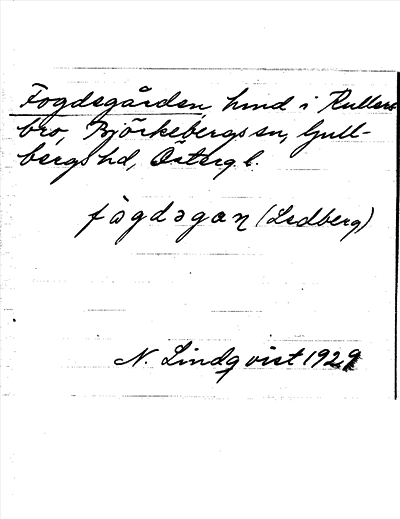 Fogdsgården, hmd i Kullers
bro, Björkebergs sn, Gull-
bergs hd, Östergl.
fògdəgan (Ledberg)
N. Lindqvist 1929